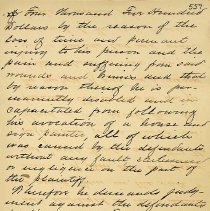 557
of Four Thousand Five Hundred
Dollars by the reason of the
loss of time and permanent
injury to his person and the
pain and suffering from said
wounds and bruises and that
by reason thereof he is per-
manently disabled and in-
capacitated from following
his avocation of a house and
sign painter, all of which
was caused by the defendants
without any fault
or negligence on the part of
the plaintiff.
Wherefore he demands judg-
ment against the defendants